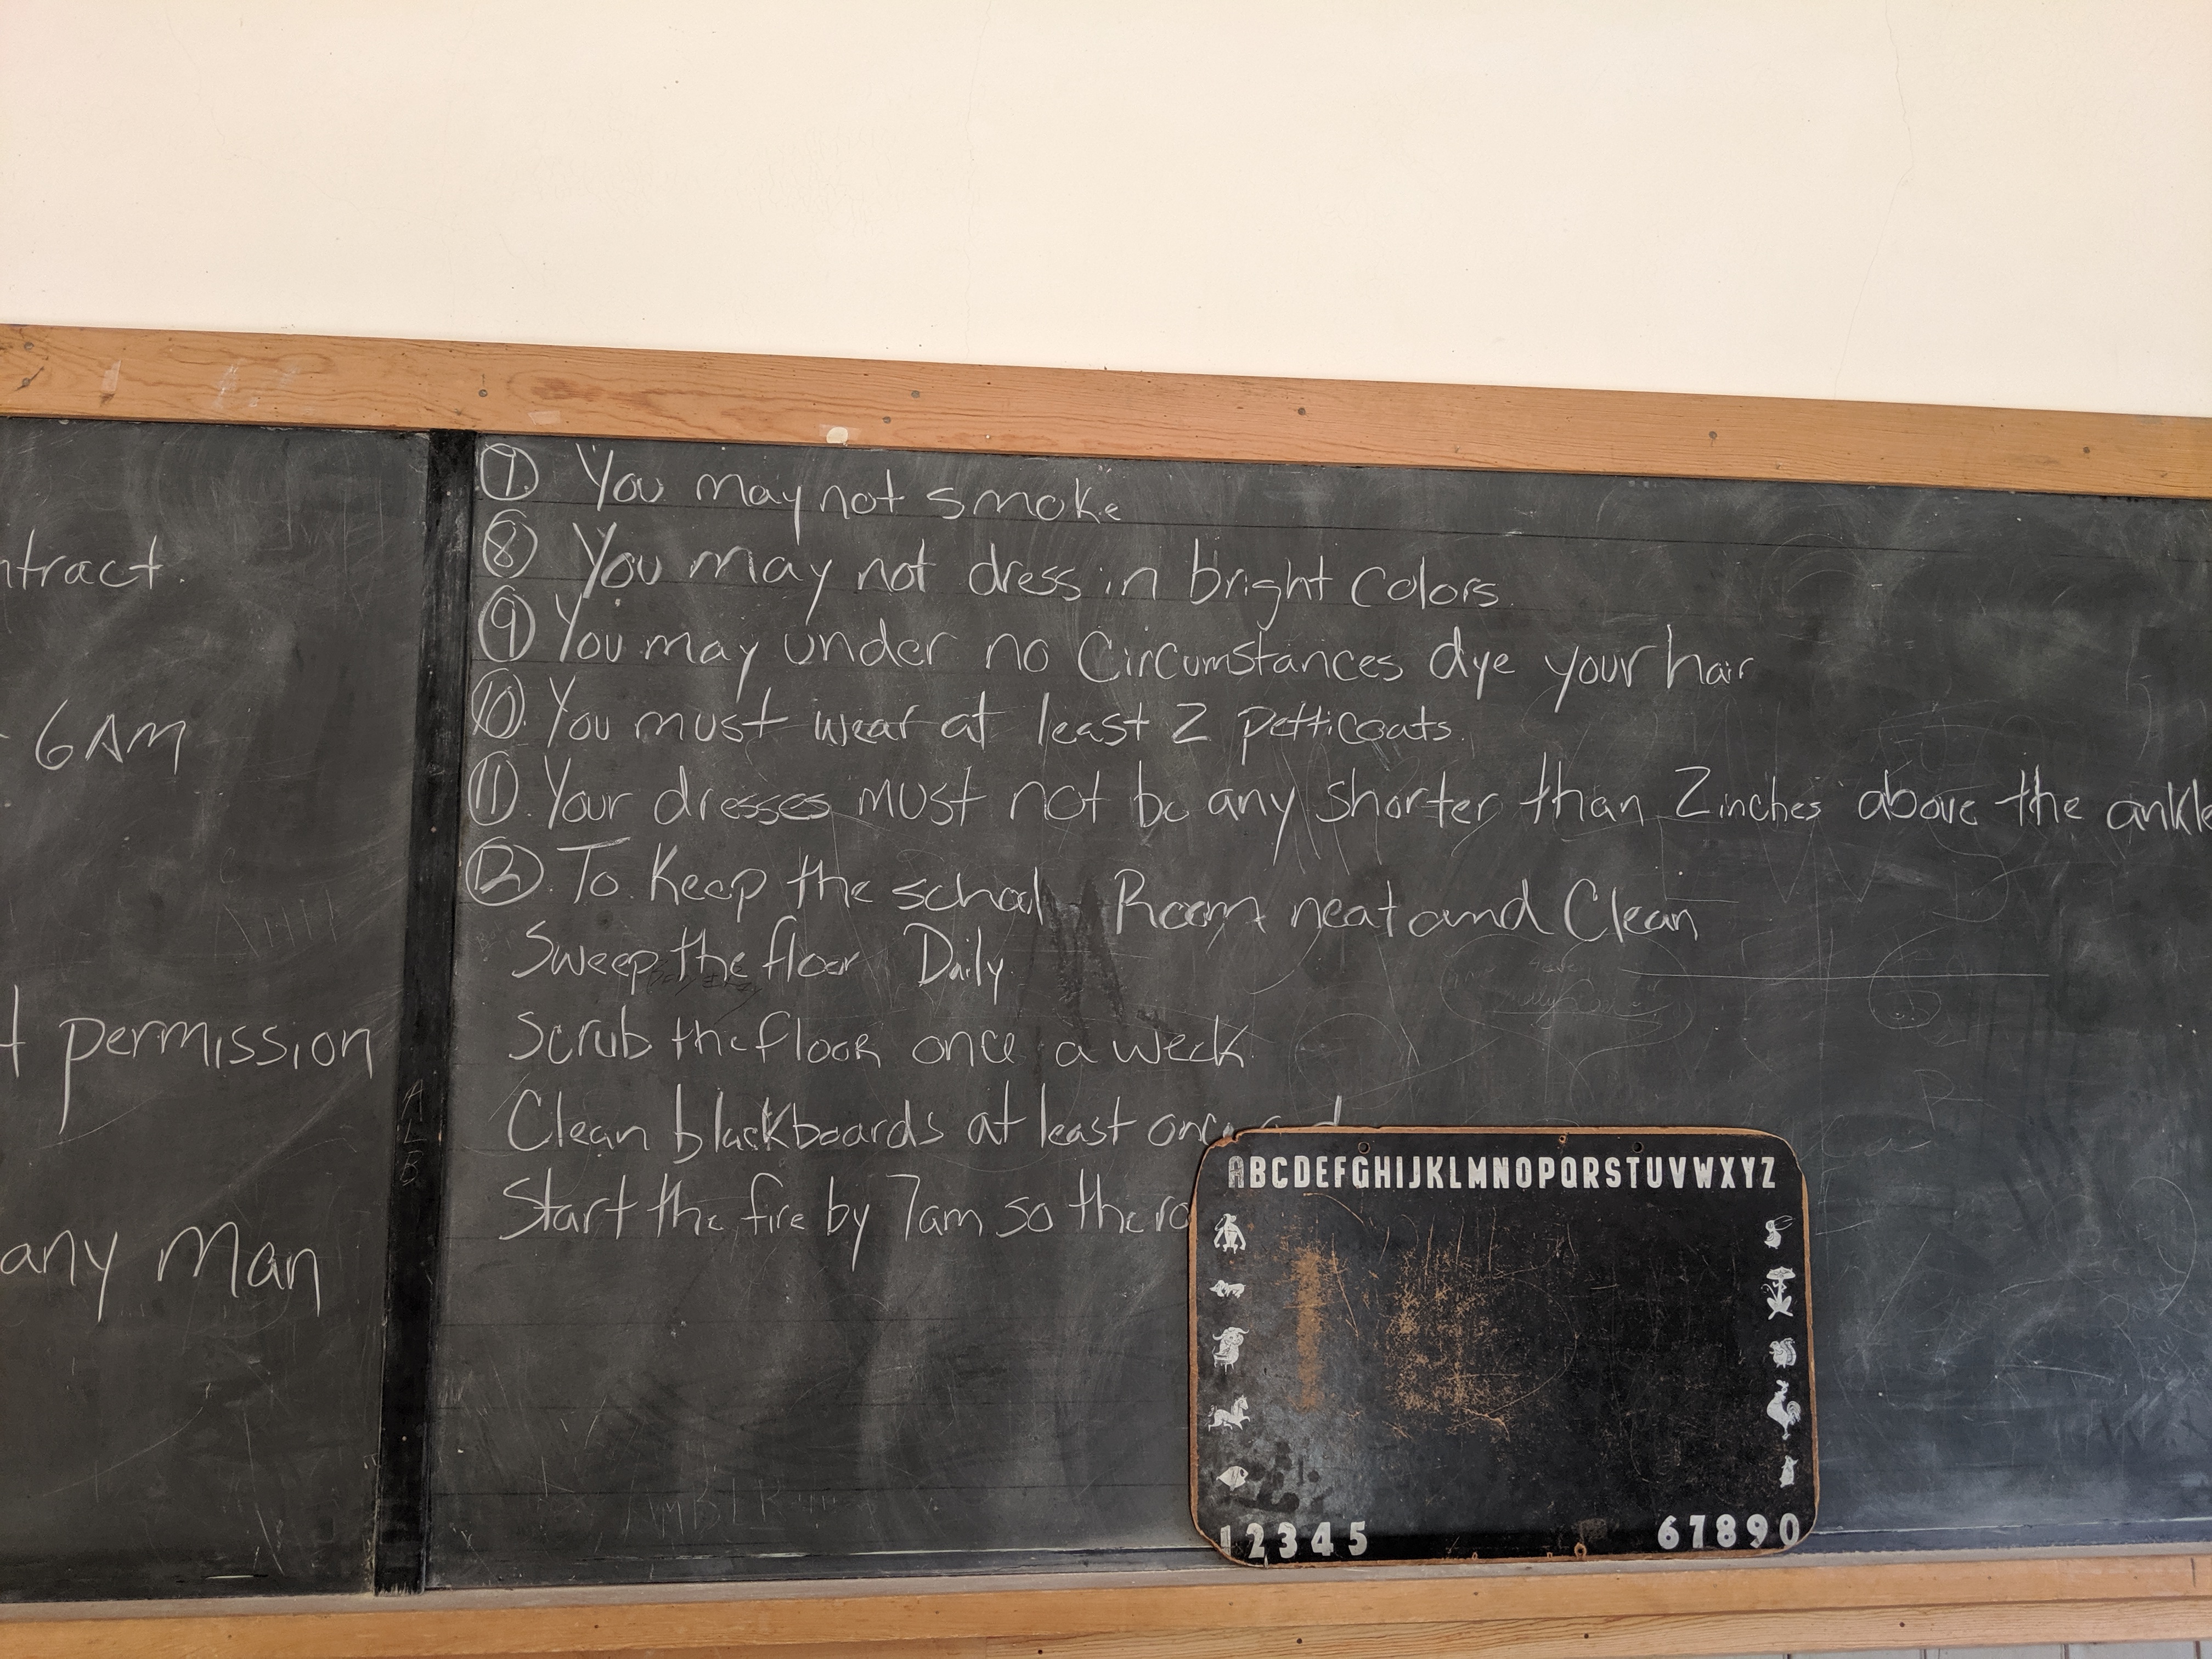 ntract.
6AM
permission
any Man
7. You may not smoke
8 You may not dress in bright Colors.
9 You may under no Circumstances dye your hair
10. You must wear at least 2 petticoats.
11. Your dresses must not be any shorter than 2 inches above the ankle
12. To Keep the school Room neat and Clean
Sweep the floor Daily.
Scrub the floor once a week.
Clean blackboards at least once a d
Start the fire by 7am so the ro
ALB
ABCDEFGHIJKLMNOPQRSTUVWXYZ
12345 67890